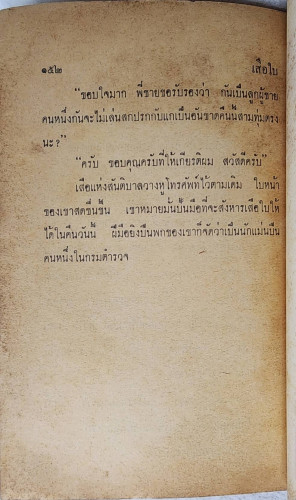 ๑๕๒ เสือใบ
“ขอบใจมาก พี่ชายขอรับรองว่า กันเป็นลูกผู้ชาย
คนหนึ่งกันจะไม่เล่นสกปรกกับแกเป็นอันขาดคืนนี้สามทุ่มตรง
นะ?”
“ครับ ขอบคุณครับที่ให้เกียรติผม สวัสดีครับ”
เสือแห่งสันติบาลวางหูโทรศัพท์ไว้ตามเดิม ใบหน้า
ของเขาสดชื่นขึ้น เขาหมายมั่นปั้นมือที่จะสังหารเสือใบให้
ได้ในคืนวันนี้ ฝีมือยิงปืนพกของเขาก็จัดว่าเป็นนักแม่นปืน
คนหนึ่งในกรมตำรวจ